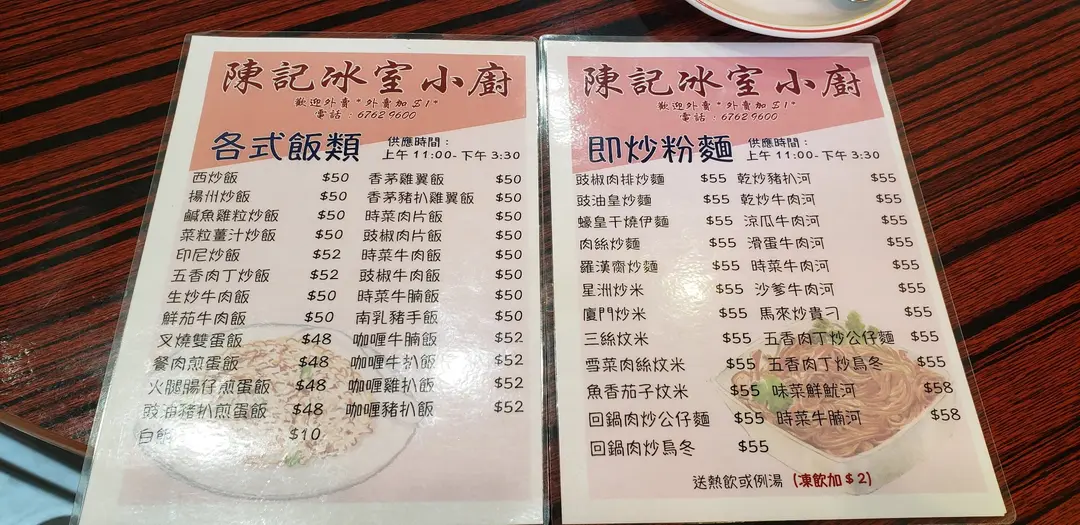 陳記冰室小廚
歡迎外賣*外賣加$1*
電話：6762 9600
各式飯類
供應時間：
上午 11:00-下午 3:30
西炒飯 $50 香茅雞翼飯 $50
揚州炒飯 $50 香茅豬扒雞翼飯 $50
鹹魚雞粒炒飯 $50 時菜肉片飯 $50
菜粒薑汁炒飯 $50 豉椒肉片飯 $50
印尼炒飯 $52 時菜牛肉飯 $50
五香肉丁炒飯 $52 豉椒牛肉飯 $50
生炒牛肉飯 $50 時菜牛腩飯 $50
鮮茄牛肉飯 $50 南乳豬手飯 $50
叉燒雙蛋飯 $48 咖喱牛腩飯 $52
餐肉煎蛋飯 $48 咖喱牛扒飯 $52
火腿腸仔煎蛋飯 $48 咖喱雞扒飯 $52
豉油豬扒煎蛋飯 $48 咖喱豬扒飯 $52
白飯 $10
陳記冰室小廚
歡迎外賣*外賣加$1*
電話：6762 9600
即炒粉麵
供應時間：
上午 11:00-下午 3:30
豉椒肉排炒麵 $55 乾炒豬扒河 $55
豉油皇炒麵 $55 乾炒牛肉河 $55
蠔皇干燒伊麵 $55 涼瓜牛肉河 $55
肉絲炒麵 $55 滑蛋牛肉河 $55
羅漢齋炒麵 $55 時菜牛肉河 $55
星洲炒米 $55 沙爹牛肉河 $55
廈門炒米 $55 馬來炒貴刁 $55
三絲炆米 $55 五香肉丁炒公仔麵 $55
雪菜肉絲炆米 $55 五香肉丁炒烏冬 $55
魚香茄子炆米 $55 味菜鮮魷河 $58
回鍋肉炒公仔麵 $55 時菜牛腩河 $58
回鍋肉炒烏冬 $55
送熱飲或例湯 (凍飲加$2)